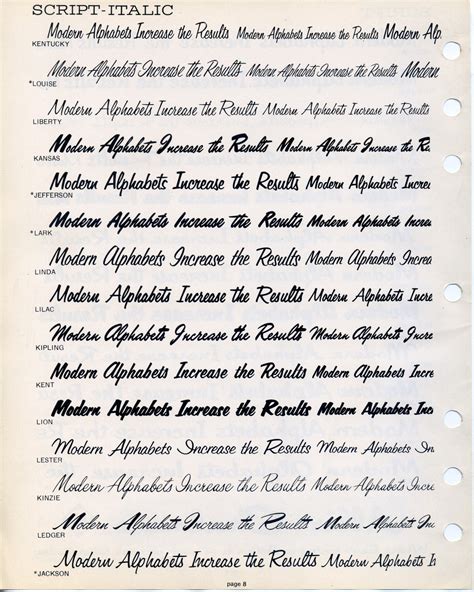 SCRIPT-ITALIC
Modern Alphabets Increase the Results Modern Alphabets Increase the Results Modern Alp
KENTUCKY
Modern Alphabets Increase the Results Modern Alphabets Increase the Results Modern
*LOUISE
Modern Alphabets Increase the Results Modern Alphabets Increase the Results
LIBERTY
Modern Alphabets Increase the Results Modern Alphabets Increase the Results
KANSAS
Modern Alphabets Increase the Results Modern Alphabets Increa
*JEFFERSON
Modern Alphabets Increase the Results Modern Alphabets Increa
*LARK
Modern Alphabets Increase the Results Modern Alphabets Increa
LINDA
Modern Alphabets Increase the Results Modern Alphabets Increa
LILAC
Modern Alphabets Increase the Results Modern Alphabets Increase
KIPLING
Modern Alphabets Increase the Results Modern Alphabets Increase
KENT
Modern Alphabets Increase the Results Modern Alphabets Inc
LION
Modern Alphabets Increase the Results Modern Alphabets Increase
LESTER
Modern Alphabets Increase the Results Modern Alphabets Increase
KINZIE
Modern Alphabets Increase the Results Modern Alphabets Increase
LEDGER
Modern Alphabets Increase the Results Modern Alphabets In
*JACKSON
page 8